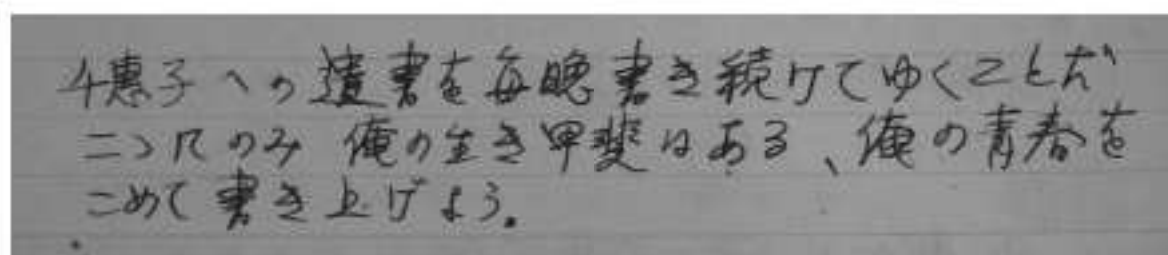 千惠子への遺書を毎晩書き続けてゆくことだ
こゝにのみ 俺の生き甲斐はある、俺の青春を
こめて書き上げよう。